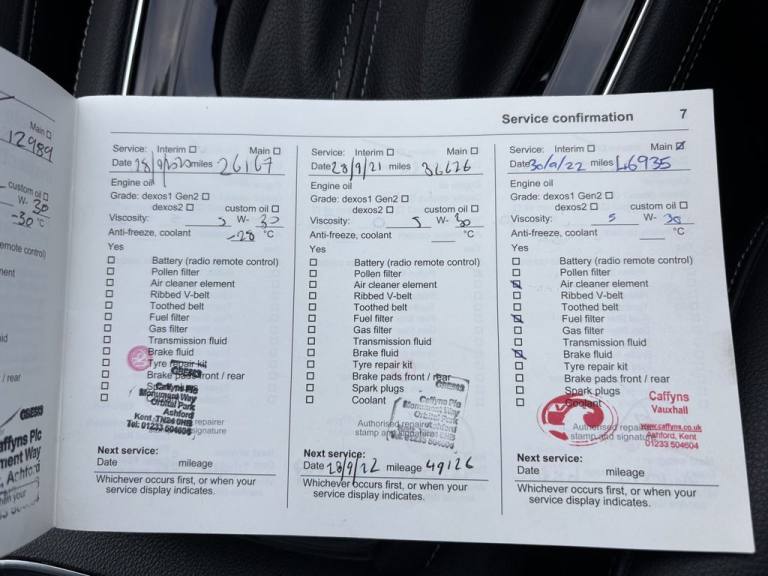 Main ☐
12989
custom oil ☐
W- 30
-30 °C
emote control)
nent
id
/ rear
affyns Plc
ment Way
Service confirmation 7
Service: Interim ☐ Main ☐
Date miles 26167
Engine oil
Grade: dexos1 Gen2 ☐
dexos2 ☐ custom oil ☐
Viscosity: 5 W- 30
Anti-freeze, coolant -28 °C
Yes
☐ Battery (radio remote control)
☐ Pollen filter
☐ Air cleaner element
☐ Ribbed V-belt
☐ Toothed belt
☐ Fuel filter
☐ Gas filter
☐ Transmission fluid
☐ Brake fluid
☐ Tyre repair kit
☐ Brake pads front / rear
☐
☐
Caffyns Plc
Monument Way
Orbital Park
Ashford
Kent TN24 0HB repairer
Tel: 01233 504604 signature
Next service:
Date mileage
Whichever occurs first, or when your
service display indicates.
Service: Interim ☐ Main ☐
Date 28/9/21 miles 36626
Engine oil
Grade: dexos1 Gen2 ☐
dexos2 ☐ custom oil ☐
Viscosity: 5 W- 30
Anti-freeze, coolant °C
Yes
☐ Battery (radio remote control)
☐ Pollen filter
☐ Air cleaner element
☐ Ribbed V-belt
☐ Toothed belt
☐ Fuel filter
☐ Gas filter
☐ Transmission fluid
☐ Brake fluid
☐ Tyre repair kit
☐ Brake pads front / rear
☐ Spark plugs
☐ Coolant
Caffyns Plc
Monument Way
Orbital Park
Authorised repairer
stamp and signature
Next service:
Date 28/9/22 mileage 49126
Whichever occurs first, or when your
service display indicates.
Service: Interim ☐ Main ☑
Date 30/9/22 miles 46935
Engine oil
Grade: dexos1 Gen2 ☐
dexos2 ☐ custom oil ☐
Viscosity: 5 W- 30
Anti-freeze, coolant °C
Yes
☐ Battery (radio remote control)
☐ Pollen filter
☑ Air cleaner element
☐ Ribbed V-belt
☐ Toothed belt
☑ Fuel filter
☐ Gas filter
☐ Transmission fluid
☑ Brake fluid
☐ Tyre repair kit
☐ Brake pads front / rear
☐ Spark plugs
☐ Coolant
Caffyns
Vauxhall
Authorised repairer
stamp and signature
www.caffyns.co.uk
Ashford, Kent
01233 504604
Next service:
Date mileage
Whichever occurs first, or when your
service display indicates.